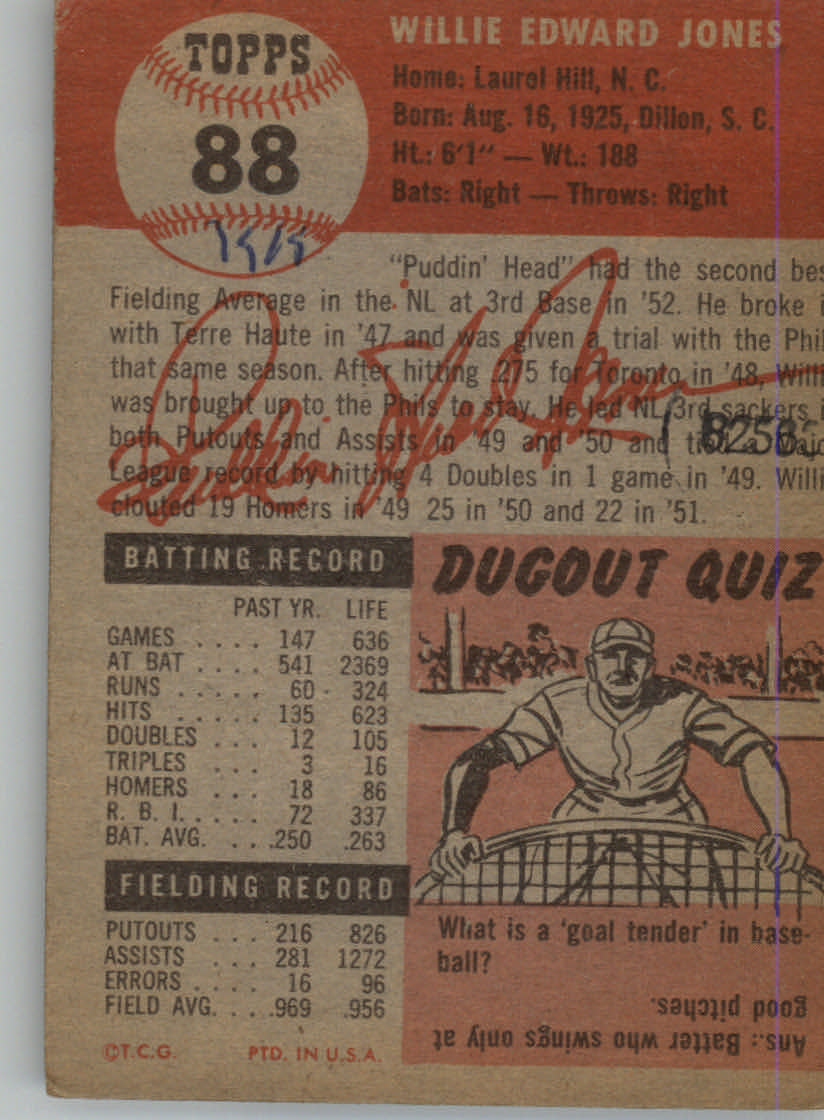 TOPPS
88
WILLIE EDWARD JONES
Home: Laurel Hill, N. C.
Born: Aug. 16, 1925, Dillon, S. C.
Ht.: 6'1" — Wt.: 188
Bats: Right — Throws: Right
"Puddin' Head" had the second bes
Fielding Average in the NL at 3rd Base in '52. He broke i
with Terre Haute in '47 and was given a trial with the Phil
that same season. After hitting .275 for Toronto in '48, Willi
was brought up to the Phils to stay. He led NL 3rd sackers i
both Putouts and Assists in '49 and '50 and tied a Majo
League record by hitting 4 Doubles in 1 game in '49. Willi
clouted 19 Homers in '49 25 in '50 and 22 in '51.
Willie Jones
BATTING RECORD
PAST YR. LIFE
GAMES .... 147 636
AT BAT .... 541 2369
RUNS ..... 60 324
HITS ..... 135 623
DOUBLES ... 12 105
TRIPLES ... 3 16
HOMERS ... 18 86
R. B. I. .... 72 337
BAT. AVG. ... .250 .263
FIELDING RECORD
PUTOUTS ... 216 826
ASSISTS ... 281 1272
ERRORS .... 16 96
FIELD AVG. ... .969 .956
©T.C.G. PTD. IN U.S.A.
DUGOUT QUIZ
What is a 'goal tender' in base-
ball?
Ans.: Batter who swings only at
good pitches.